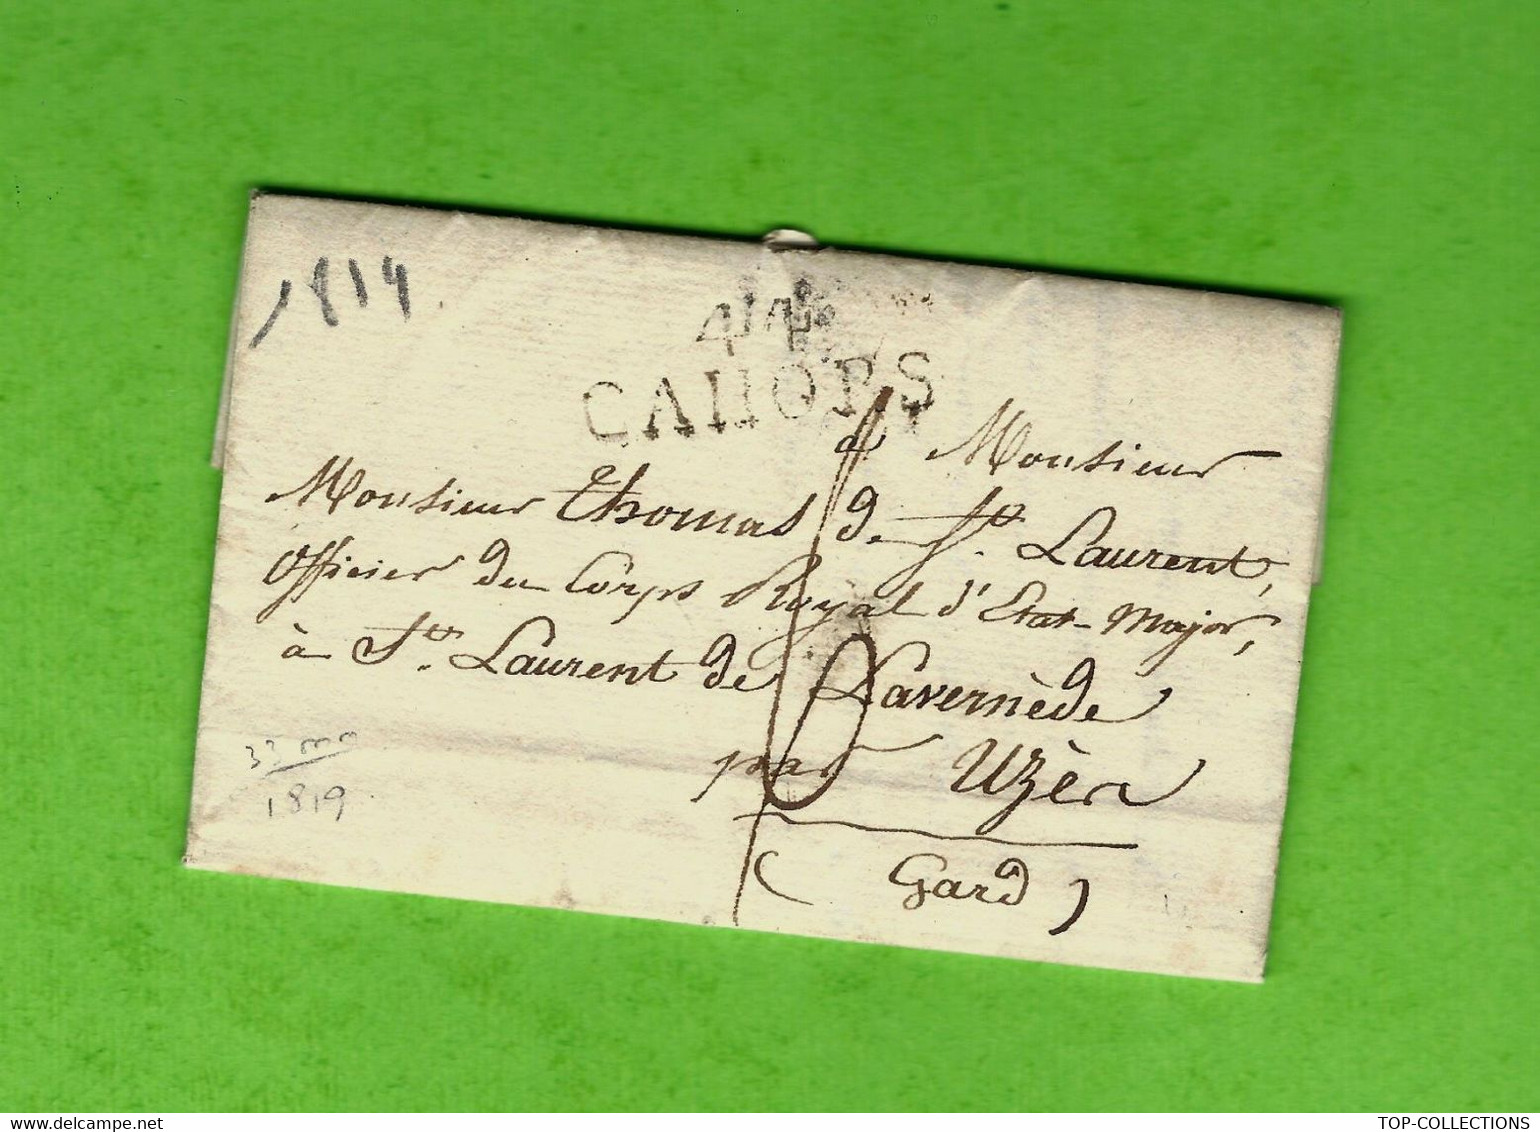 1814
44
CAHORS
a Monsieur
Monsieur Thomas de St. Laurent,
Officier du Corps Royal d'Etat-Major,
à St. Laurent de Lavernède
par Uzès
(Gard)
33 mm
1819
TOP-COLLECTIONS